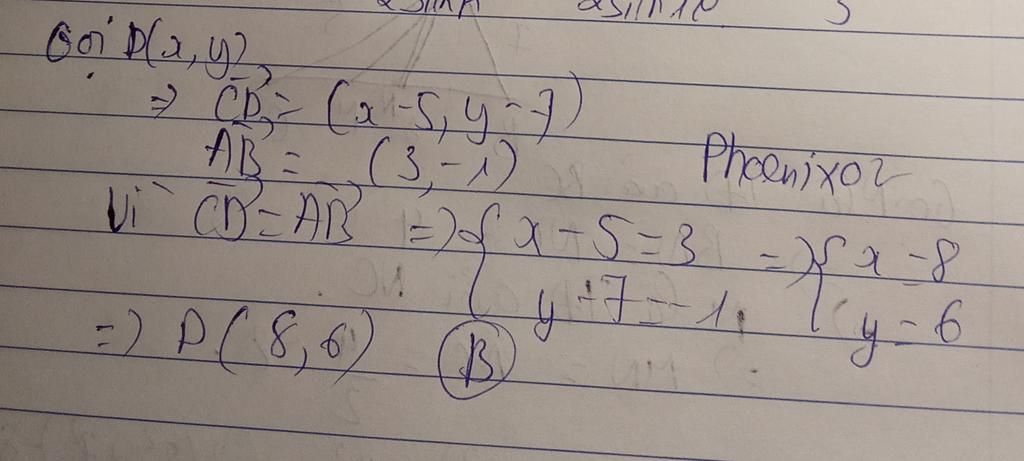 Gọi D(x, y)
=> CD = (x - 5, y - 7)
AB = (3, -1)
Phoenix02
Vì CD = AB => { x - 5 = 3 => { x = 8
y + 7 = -1 y = 6
=> D(8, 6) B